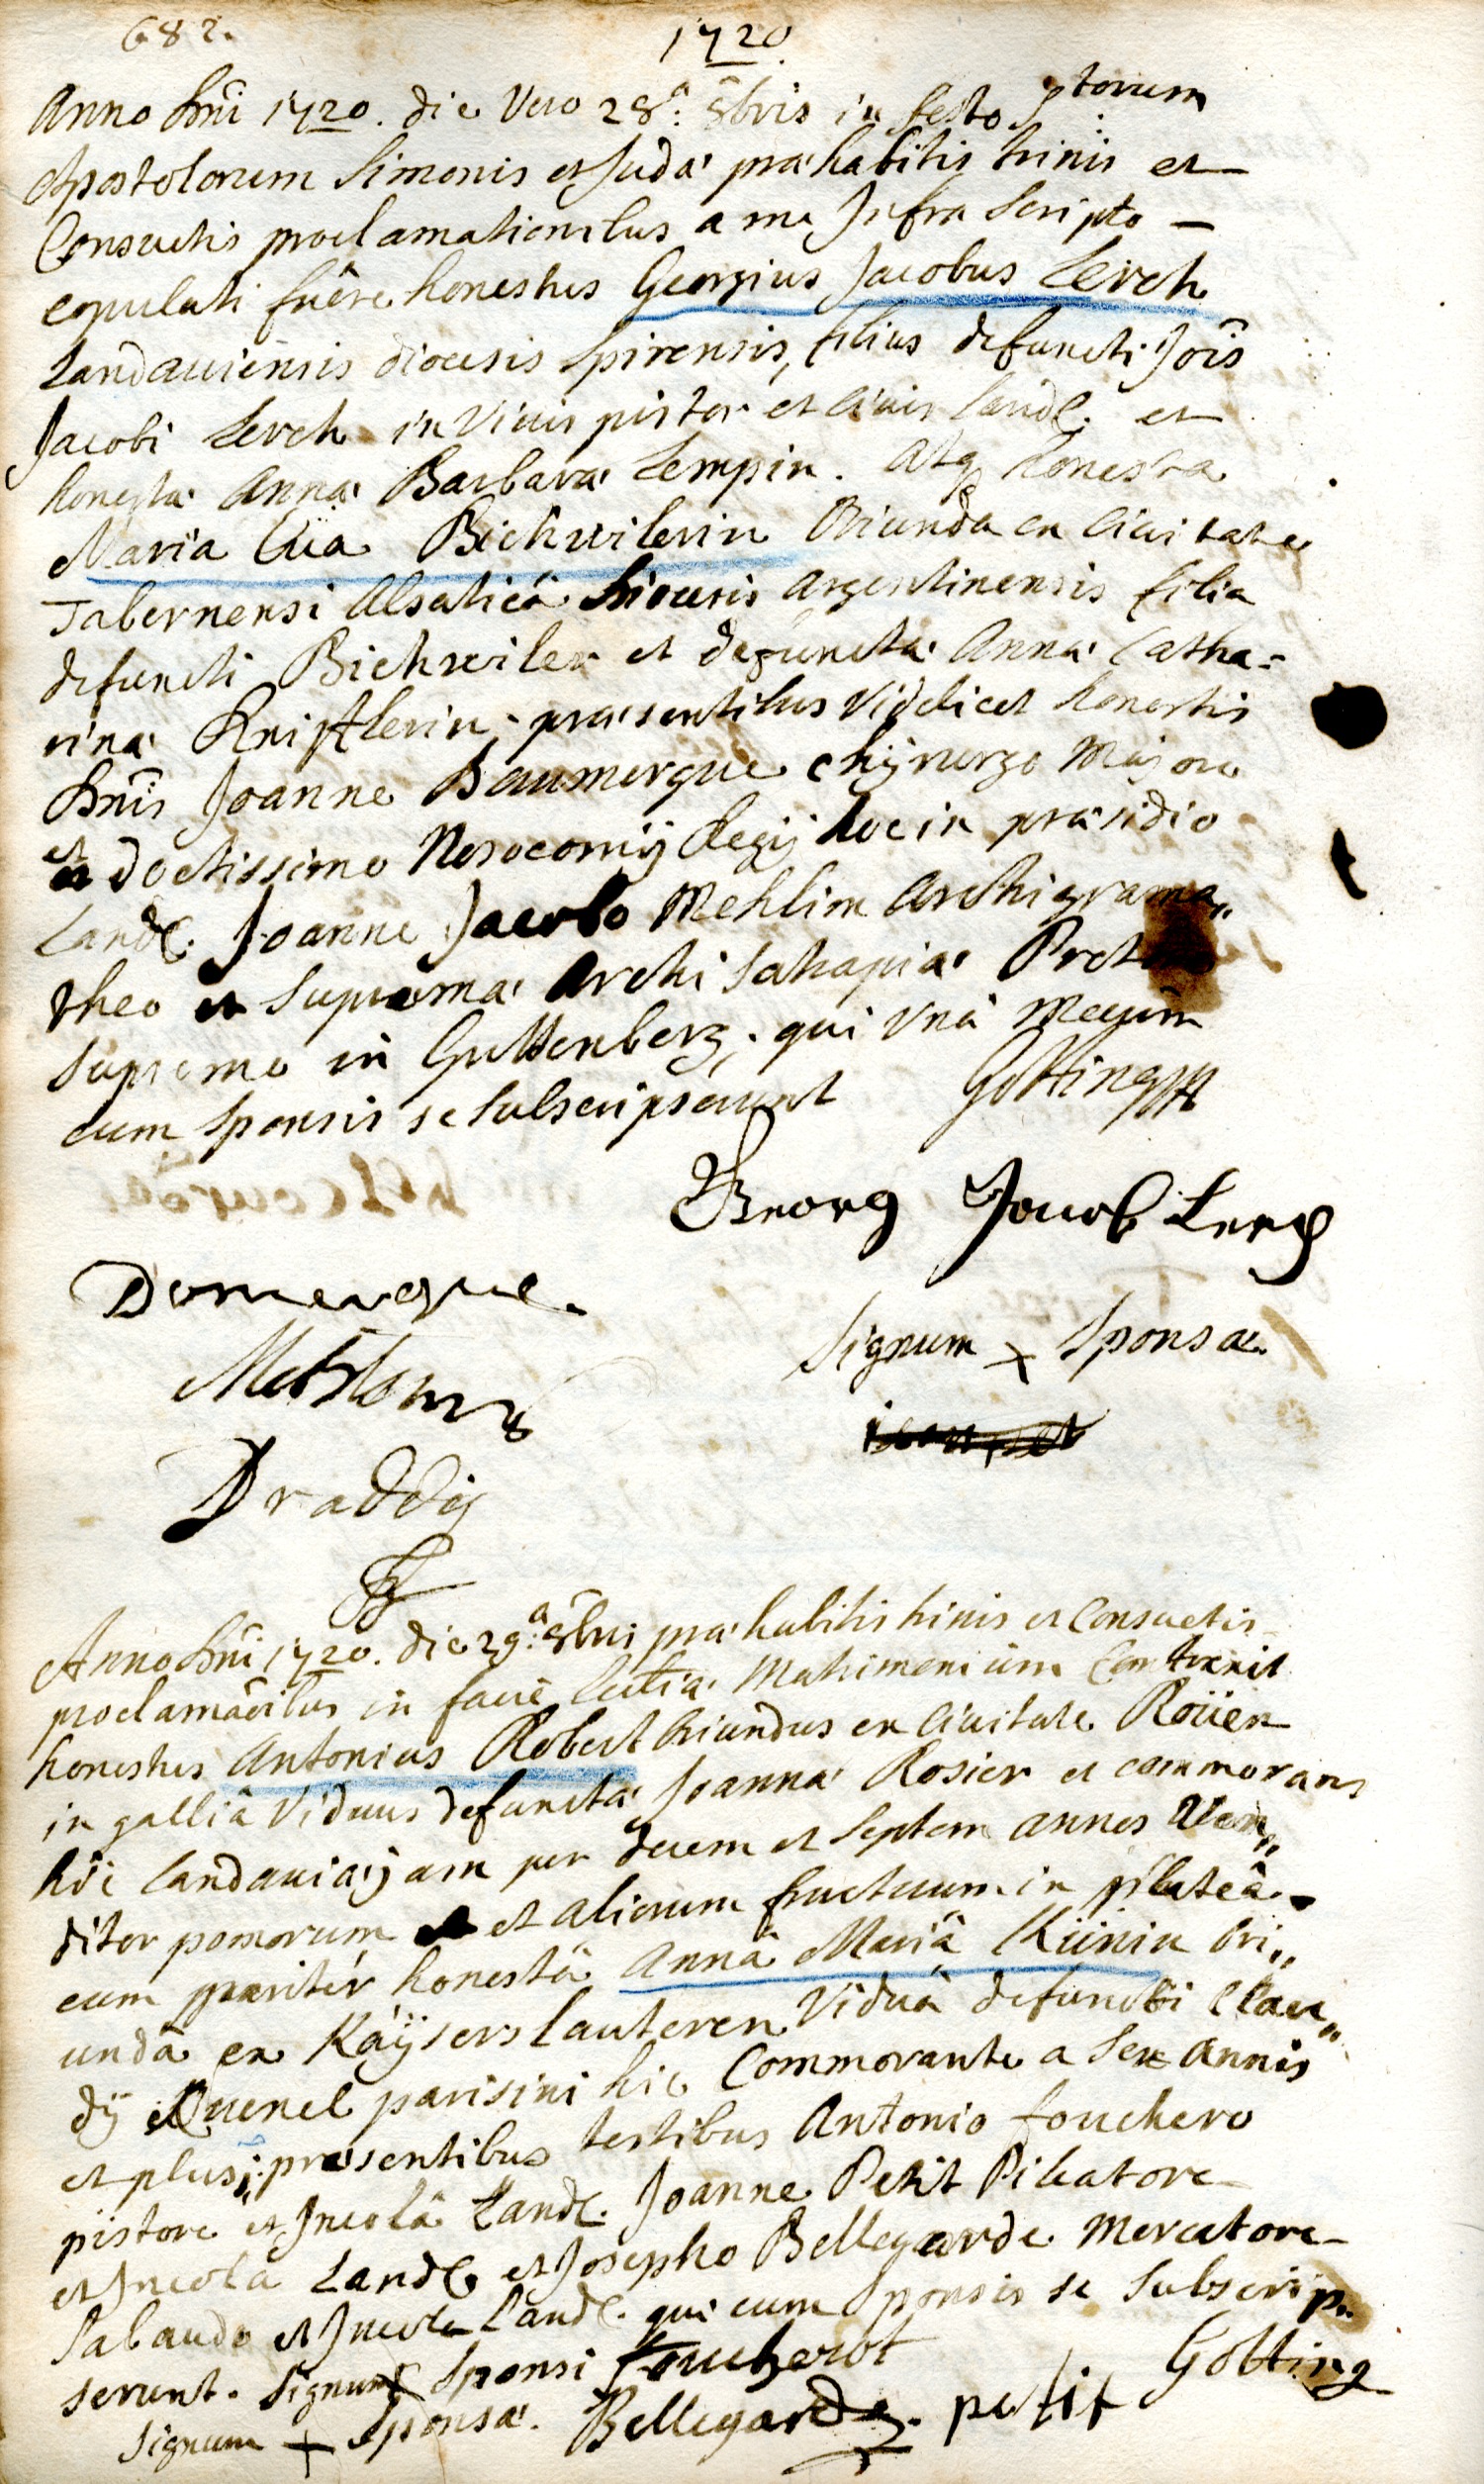 682.
1720
Anno Dni 1720. die Vero 28ª: 8bris in festo Storum
Apostolorum Simonis et Juda præhabitis trinis et
Consuetis proclamationibus a me Infra Scripto
copulati fuêre honestus Georgius Jacobus Lerch
Landaviensis diocesis Spirensis, filius defuncti Jois
Jacobi Lerch in Vivis pistor et civis Landæ. et
honestæ Annæ Barbaræ Lempin. atq honesta
Maria Eva Bichwilerin Oriunda ex Civitate
Tabernensi Alsaticâ Diocesis Argentinensis filia
defuncti Bichwiler et defunctæ Annæ Catha=
rinæ Knifflerin, præsentibus Videlicet honestis
Dnis Joanne Daumergue chÿrurgo Majore
et doctissimo Nosocomÿ Regÿ hoc in præsidio
Landæ. Joanne Jacobo Mehlim Archigrama„
theo et Supremæ Archi Satrapiæ
Supremo in Guttenberg, qui Vnâ Mecum
cum Sponsis se Subscripserunt Gotting
Georg Jacob Lerch
Domergue.
Signum x Sponsæ.
Draddÿ
Anno Dni 1720. die 29ª: 8bris præhabitis trinis et Consuetis
proclamaõibus in faciê Ecclîæ Matrimonium Contraxit
honestus Antonius Robert Oriundus ex Civitate Roüen
in galliâ Viduus defunctæ Joannæ Rosier et commorans
hic Landaviæ jam per decem et Septem annos Ven„
ditor pomorum et aliorum fructuum in plateâ
cum pariter honestâ Annâ Mariâ Künin Ori„
undâ ex Kaÿserslauteren Viduâ defuncti Clau„
dÿ Quenel parisini hic Commorante a Sex annis
et plus; præsentibus testibus Antonio fouchero
pistore et Incolâ Landæ. Joanne Petit Pileatore
et Incolâ Landæ et Josepho Bellegarde Mercatore
Sabaudo et Incola Landæ. qui cum Sponsis se Subscrip„
serunt. Signum x Sponsi foucherot Gotting
Signum + Sponsæ. Bellegarde. petit